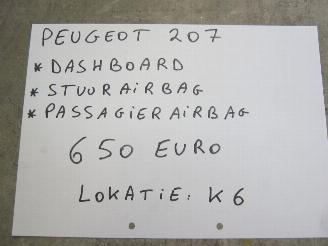 PEUGEOT 207
* DASHBOARD
* STUUR AiRBAG
* PASSAGiER AiRBAG
650 EURO
LOKATiE: K6